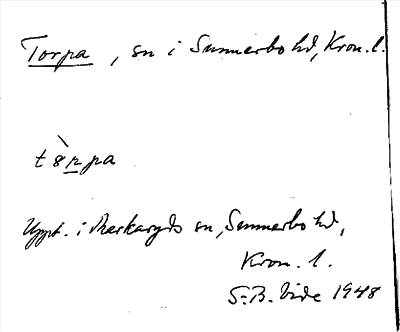 Torpa, sn i Sunnerbo hd, Kron. l.
tòrpa
Uppt. i Markaryds sn, Sunnerbo hd,
Kron. l.
S.B. Vide 1948